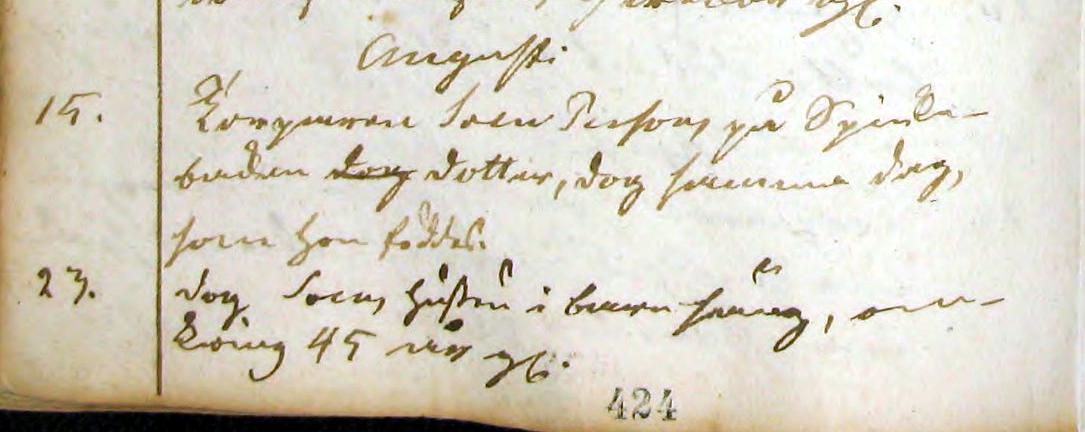 Augusti
15. Torparen Sven Persons på Spinka-
boden dog dotter, dog samma dag,
som hon föddes.
23. dog Svens hustru i barnsäng, om-
kring 45 år gl.
424